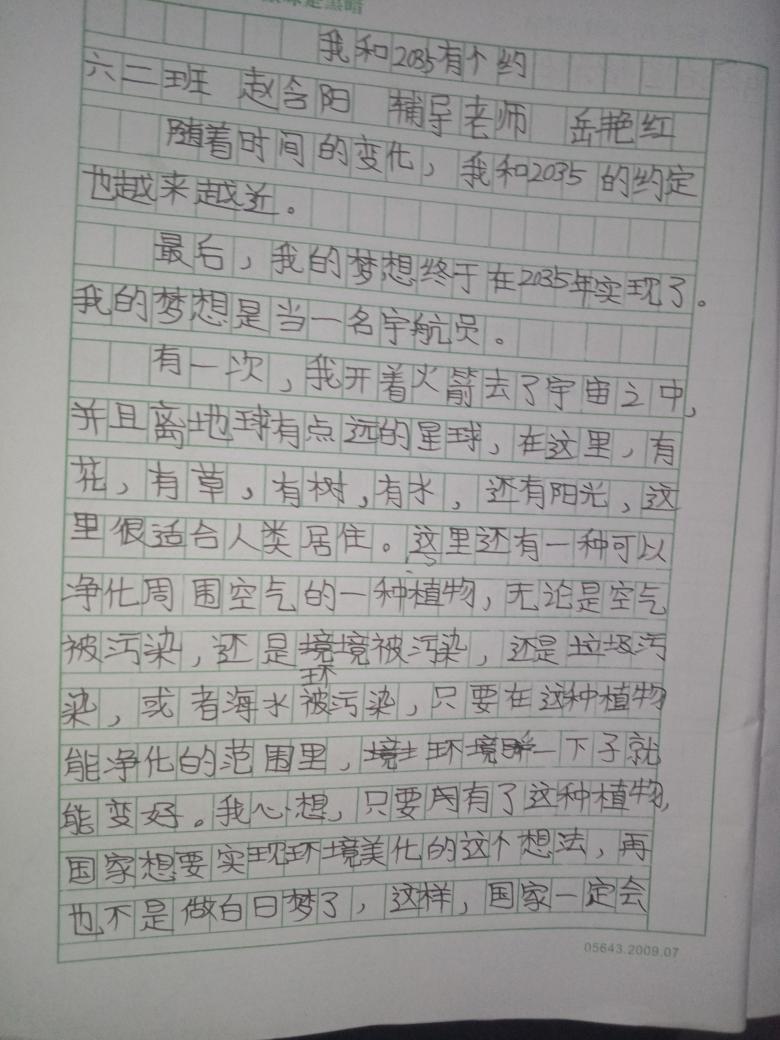 我和2035有个约
六二班 赵含阳 辅导老师 岳艳红
随着时间的变化，我和2035的约定
也越来越近。
最后，我的梦想终于在2035年实现了。
我的梦想是当一名宇航员。
有一次，我开着火箭去了宇宙之中，
并且离地球有点远的星球，在这里，有
花，有草，有树，有水，还有阳光，这
里很适合人类居住。这里还有一种可以
净化周围空气的一种植物，无论是空气
被污染，还是环境被污染，还是垃圾污
染，或者海水被污染，只要在这种植物
能净化的范围里，环境一下子就
能变好。我心想，只要有了这种植物，
国家想要实现环境美化的这个想法，再
也不是做白日梦了，这样，国家一定会
05643.2009.07